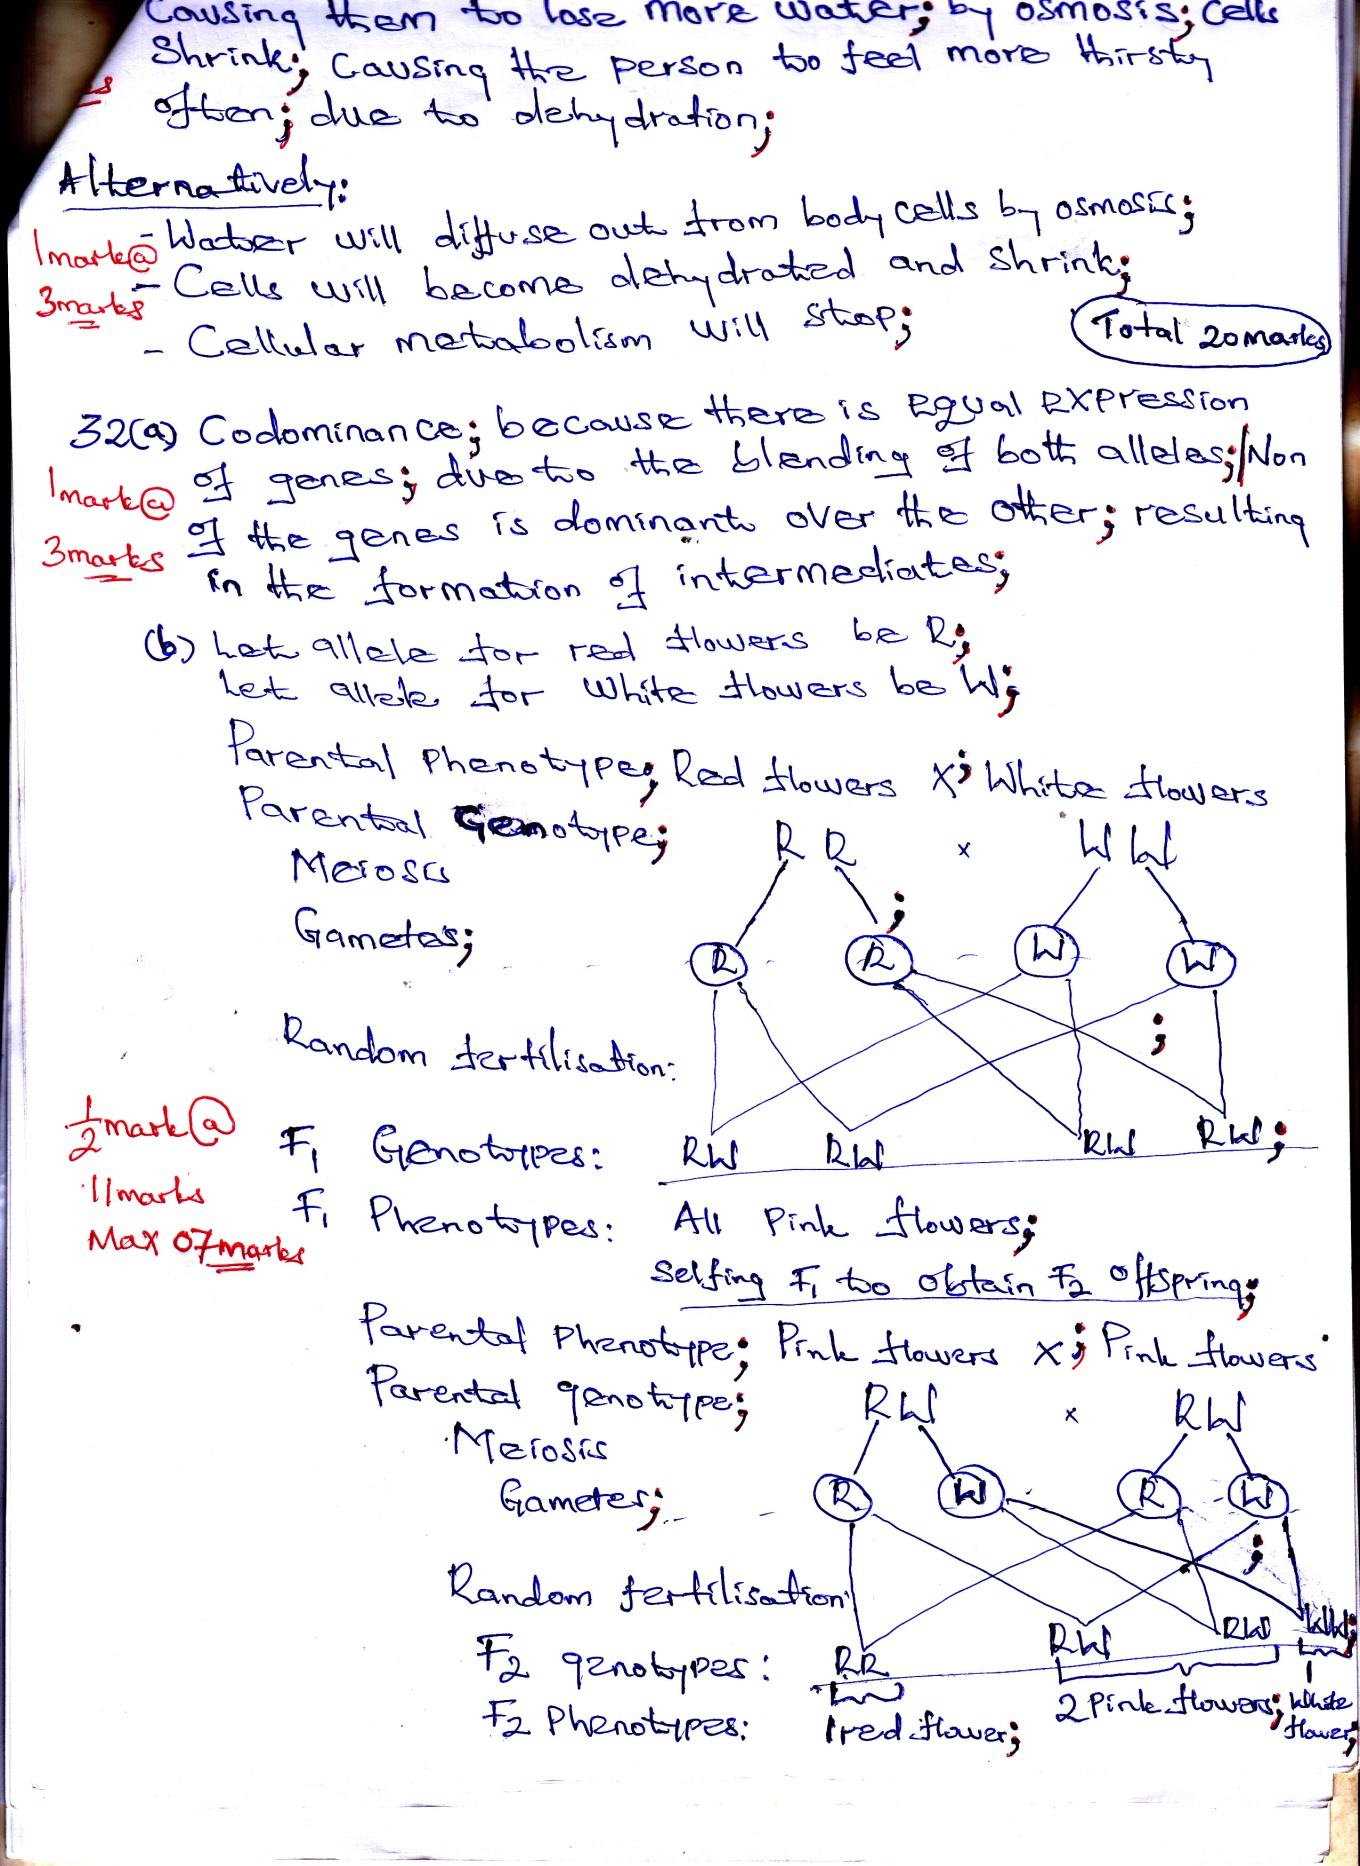 Causing them to lose more water; by osmosis; Cells
Shrink; Causing the person to feel more thirsty
often; due to dehydration;
Alternatively:
- Water will diffuse out from body cells by osmosis;
1mark@
- Cells will become dehydrated and shrink;
3marks
- Cellular metabolism will stop;
Total 20marks
32(a) Codominance; because there is Equal Expression
of genes; due to the blending of both alleles;/Non
1mark@
of the genes is dominant over the other; resulting
3marks
in the formation of intermediates;
(b) Let allele for red flowers be R;
Let allele for White flowers be W;
Parental Phenotype; Red flowers X; White flowers
Parental Genotype; RR x WW
Meiosis
Gametes; R R W W
Random fertilisation:
1/2 mark@
F1 Genotypes: RW RW RW RW;
11marks
F1 Phenotypes: All Pink flowers;
Max 07marks
Selfing F1 to obtain F2 Offspring;
Parental Phenotype; Pink flowers X; Pink flowers
Parental genotype; RW x RW
Meiosis
Gametes; R W R W
Random fertilisation
F2 genotypes: RR RW RW WW;
F2 Phenotypes: 1red flower; 2 Pink flowers; White flower;